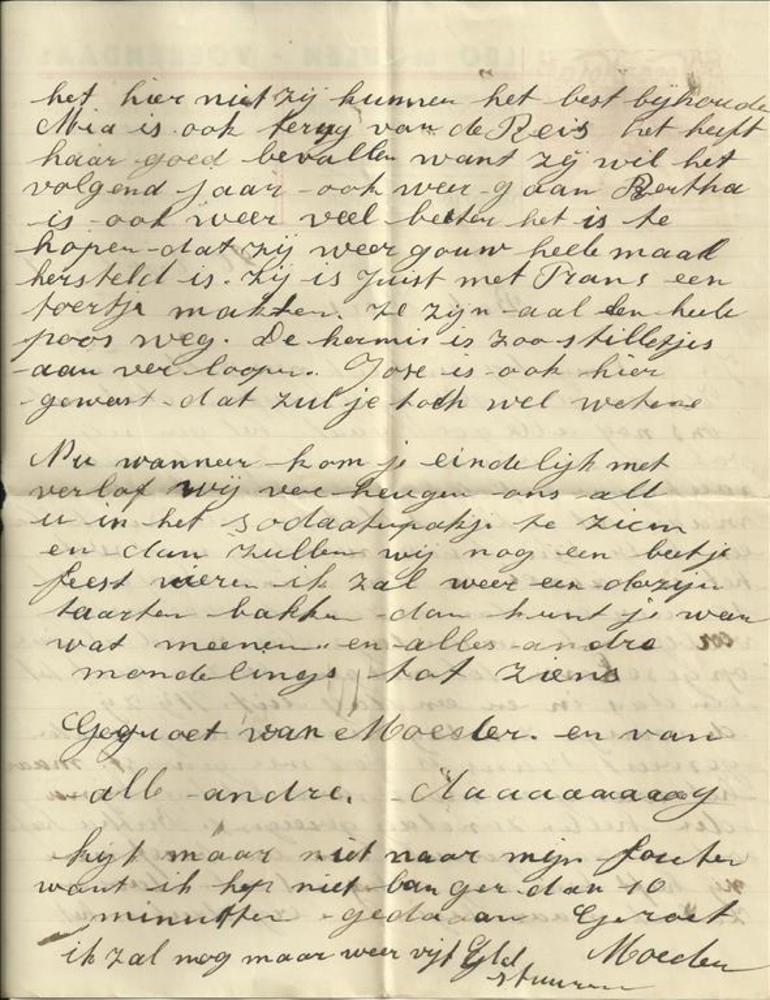 het hier niet zij kunnen het best bijhoude
Mia is ook terug van de Reis het heeft
haar goed bevallen want zij wil het
volgend jaar ook weer gaan Bertha
is ook weer veel beeter het is te
hopen dat zij weer gouw heelemaal
hersteld is. Zij is juist met Frans een
toertje maken. ze zijn aal een heele
poos weg. De kermis is zoo stilletjes
aan verloopen. Jose is ook hier
geweest dat zul je toch wel weten
Nu wanneer kom je eindelijk met
verlof wij verheugen ons all
u in het sodaatepakje te zien
en dan zullen wij nog een beetje
feest vieren ik zal weer een dozijn
taarten bakken dan kunt je weer
wat meenemen en alles andre
mondelings tot ziens
Gegroet van Moeder. en van
alle andre. Daaaaaaaaag
kijt maar niet naar mijn fouten
want ik heb niet langer dan 10
minutten gedaaan Geroet
ik zal nog maar weer vijf Gld Moeder
stuuren